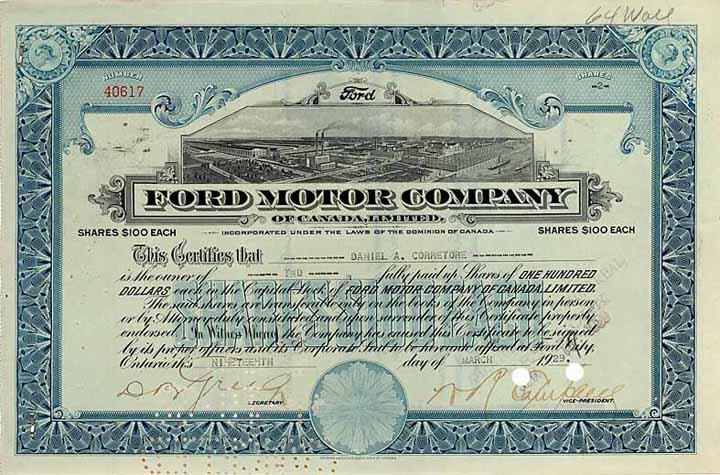 64 Wall
NUMBER
SHARES
40617
-2-
Ford
FORD MOTOR COMPANY
OF CANADA, LIMITED.
SHARES $100 EACH
INCORPORATED UNDER THE LAWS OF THE DOMINION OF CANADA
SHARES $100 EACH
This Certifies that DANIEL A. CORRETORE
is the owner of TWO fully paid up Shares of ONE HUNDRED
DOLLARS each in the Capital Stock of FORD MOTOR COMPANY OF CANADA, LIMITED.
The said shares are transferable only on the books of the Company in person
or by Attorney duly constituted upon surrender of this Certificate properly
endorsed. In Witness Whereof the Company has caused this Certificate to be signed
by its proper officers and its Corporate Seal to be hereunto affixed at Ford City,
Ontario this NINETEENTH day of MARCH 1929.
SECRETARY.
VICE-PRESIDENT.